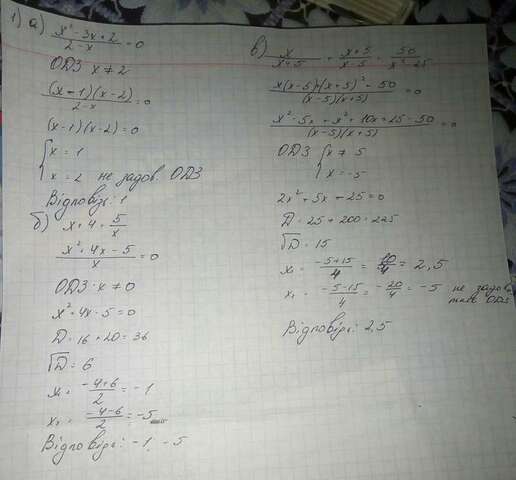 1) а) (x² - 3x + 2)/(2 - x) = 0
ОДЗ x ≠ 2
((x - 1)(x - 2))/(2 - x) = 0
(x - 1)(x - 2) = 0
{ x = 1
x = 2 не задов. ОДЗ
Відповідь: 1
б) x + 4 = 5/x
(x² + 4x - 5)/x = 0
ОДЗ: x ≠ 0
x² + 4x - 5 = 0
D = 16 + 20 = 36
√D = 6
x₁ = (-4+6)/2 = -1
x₂ = (-4-6)/2 = -5
Відповідь: -1, -5
в) x/(x+5) + (x+5)/(x-5) = 50/(x²-25)
(x(x-5)+(x+5)²-50)/((x-5)(x+5)) = 0
(x² - 5x + x² + 10x + 25 - 50)/((x-5)(x+5)) = 0
ОДЗ { x ≠ 5
x = -5
2x² + 5x - 25 = 0
D = 25 + 200 = 225
√D = 15
x₁ = (-5+15)/4 = 10/4 = 2,5
x₂ = (-5-15)/4 = -20/4 = -5 не задов.
ОДЗ
Відповідь: 2,5